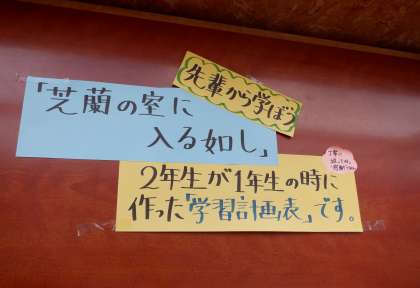 先輩から学ぼう
「芝蘭の室に
入る如し」
2年生が1年生の時に
作った「学習計画表」です。